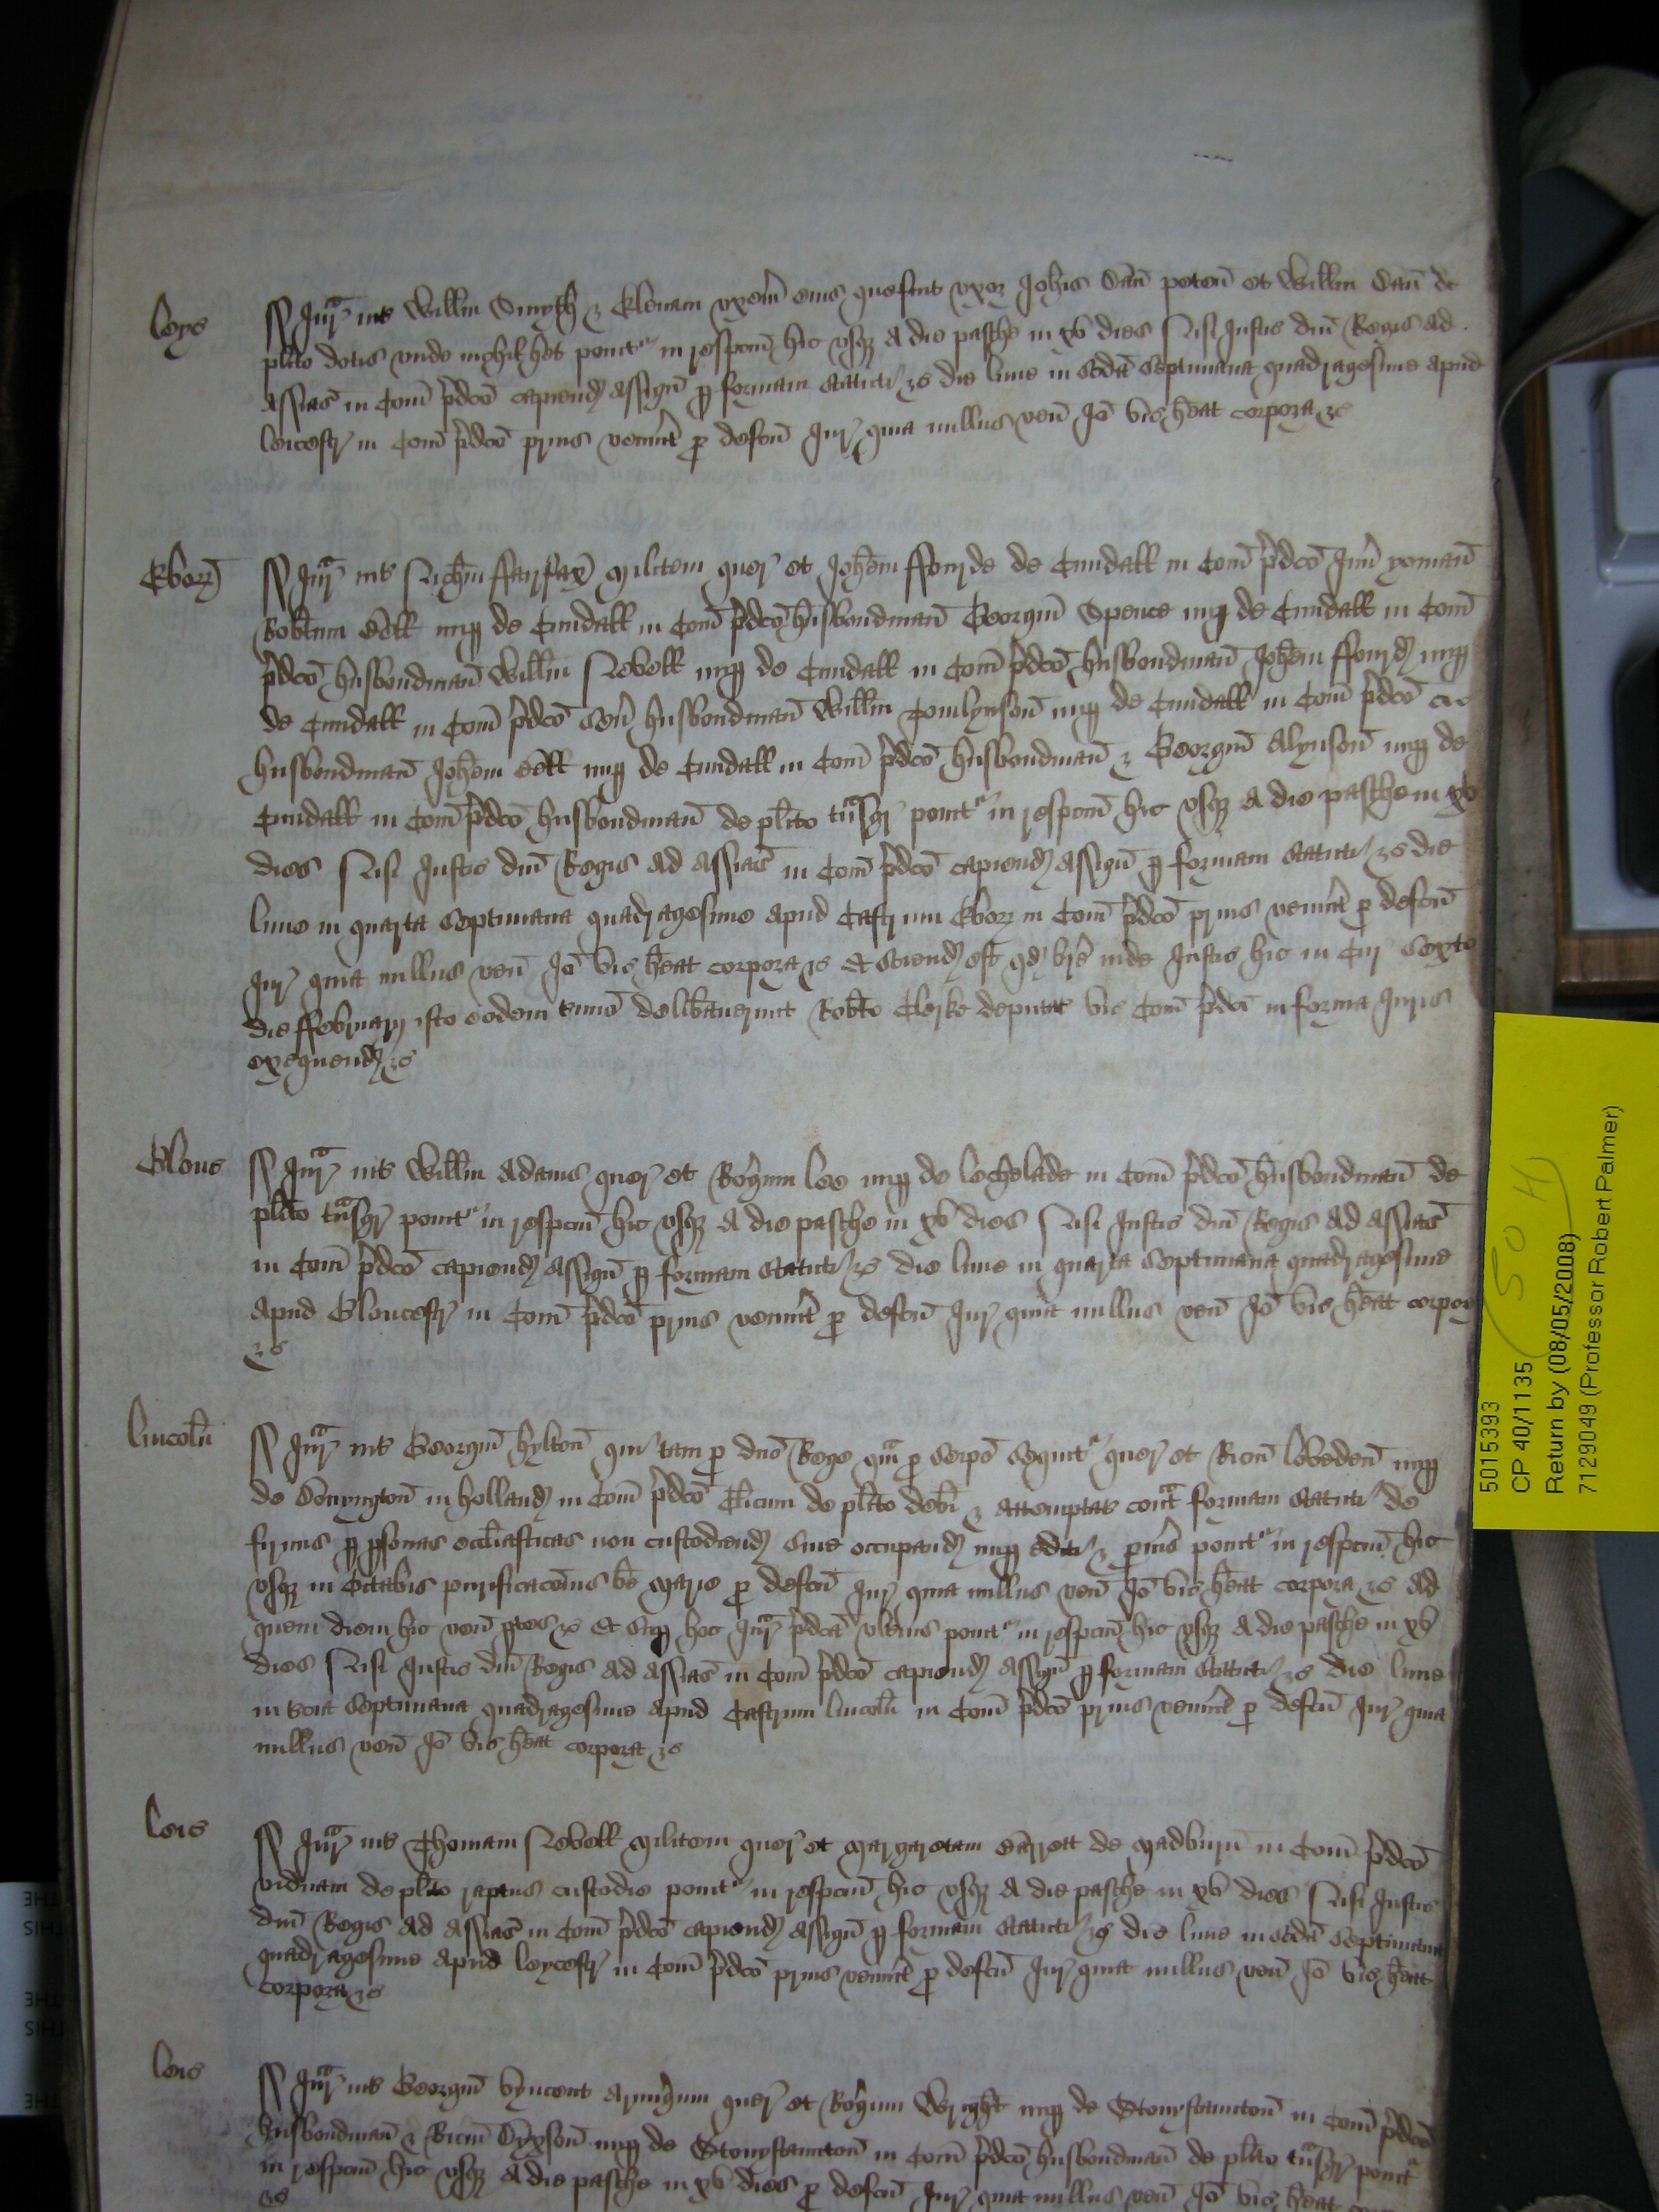 Leyc
Jur̃ int̃ Willm̃ Smyth & Elenam uxem̃ eius que fuit uxor Joh̃is Dañ peteñ et Willm̃ Dañ de
plito dotis unde nichil het ponit' in respc̃m hic usq̃ a die pasche in xv dies Nisi Justic̃ dñi Regis ad
assias̃ in Com̃ p̃dc̃o capiend̃ assigñ p formam statuti &c die lune in sc̃da septimana quadragesime apud
leicestr̃ in Com̃ p̃dc̃o prius ven̄int p defc̃u Jur̃ quia nullus veñ Jõ vic̃ heat corpora &c
Eborr̃
Jur̃ int̃ Nich̃m ffairfax militem quer̃ et Joh̃em ffourde de Cundall in Com̃ p̃dc̃o Juñ yomañ
Rob̃tum Bell nup de Cundall in Com̃ p̃dc̃o husbondmañ Georgiũ Spence nup de Cundall in Com̃
p̃dc̃o husbondmañ Willm̃ Nevell nup de Cundall in Com̃ p̃dc̃o husbondmañ Joh̃em ffourd̃ nup
de Cundall in Com̃ p̃dc̃o señ husbondmañ Willm̃ Tomlynsoñ nup de Cundall in Com̃ p̃dc̃o
husbondmañ Joh̃em Bell nup de Cundall in Com̃ p̃dc̃o husbondmañ & Georgiũ Alynsoñ nup de
Cundall in Com̃ p̃dc̃o husbondmañ de plito tñsgr̃ ponit' in respc̃m hic usq̃ a die pasche in xv
dies Nisi Justic̃ dñi Regis ad assias̃ in Com̃ p̃dc̃o capiend̃ assigñ p formam statuti &c die
lune in quarta septimana quadragesime apud Castrum Eborr̃ in Com̃ p̃dc̃o prius ven̄int p defc̃u
Jur̃ quia nullus veñ Jõ vic̃ heat corpora &c Et sciend̃ est qd̃ br̃e inde Justic̃ hic in Cur̃ sexto
die ffebruarij isto eodem t̃mino delib̃averunt Rob̃to Clerke deputat̃ vic̃ Com̃ p̃dc̃i in forma Juris
exequend̃ &c
Glouc̃
Jur̃ int̃ Willm̃ Adams quer̃ et Rog̃um lee nup de lechelade in Com̃ p̃dc̃o husbondmañ de
plito tñsgr̃ ponit' in respc̃m hic usq̃ a die pasche in xv dies Nisi Justic̃ dñi Regis ad assias̃
in Com̃ p̃dc̃o capiend̃ assigñ p formam statuti &c die lune in quarta septimana quadragesime
apud Gloucestr̃ in Com̃ p̃dc̃o prius ven̄int p defc̃u Jur̃ quia nullus veñ Jõ vic̃ heat corpora
&c
lincolñ
Jur̃ int̃ Georgiũ hyltoñ qui tam p dño Rege qm̃ p seipõ sequit' quer̃ et Ric̃m nup
de Donyngtoñ in holland̃ in Com̃ p̃dc̃o Cl̃icum de plito deb̃i & attemptat̃ cont̃ formam statuti de
firmis p psonas ecc̃liasticas non custodiend̃ sive occupand̃ nup edit̃ & p̃vis̃ ponit' in respc̃m hic
usq̃ in Octabis purificac̃onis b̃e Marie p defc̃u Jur̃ quia nullus veñ Jõ vic̃ heat corpora &c Ad
quem diem hic veñ ptes &c Et sup hoc Jur̃ p̃dc̃a ult̃ius ponit' in respc̃m hic usq̃ a die pasche in xv
dies Nisi Justic̃ dñi Regis ad assias̃ in Com̃ p̃dc̃o capiend̃ assigñ p formam statuti &c die lune
in t̃cia septimana quadragesime apud Castrum lincolñ in Com̃ p̃dc̃o prius ven̄int p defc̃u Jur̃ quia
nullus veñ Jõ vic̃ heat corpora &c
leic̃
Jur̃ int̃ Thomam Nevell militem quer̃ et Margaretam Barrett de Madburñ in Com̃ p̃dc̃o
viduam de plito raptus custodie ponit' in respc̃m hic usq̃ a die pasche in xv dies Nisi Justic̃
dñi Regis ad assias̃ in Com̃ p̃dc̃o capiend̃ assigñ p formam statuti &c die lune in sc̃da septimana
quadragesime apud leycestr̃ in Com̃ p̃dc̃o prius ven̄int p defc̃u Jur̃ quia nullus veñ Jõ vic̃ heat
corpora &c
leic̃
Jur̃ int̃ Georgiũ vyncent armig̃um quer̃ et Rog̃um Wright nup de Stonystauntoñ in Com̃ p̃dc̃o
husbondmañ & Ric̃m Dyxsoñ nup de Stonystauntoñ in Com̃ p̃dc̃o husbondmañ de plito tñsgr̃ ponit'
in respc̃m hic usq̃ a die pasche in xv dies p defc̃u Jur̃ quia nullus veñ Jõ vic̃ heat
&c
5015393
CP 40/1135
Return by (08/05/2008)
7129049 (Professor Robert Palmer)